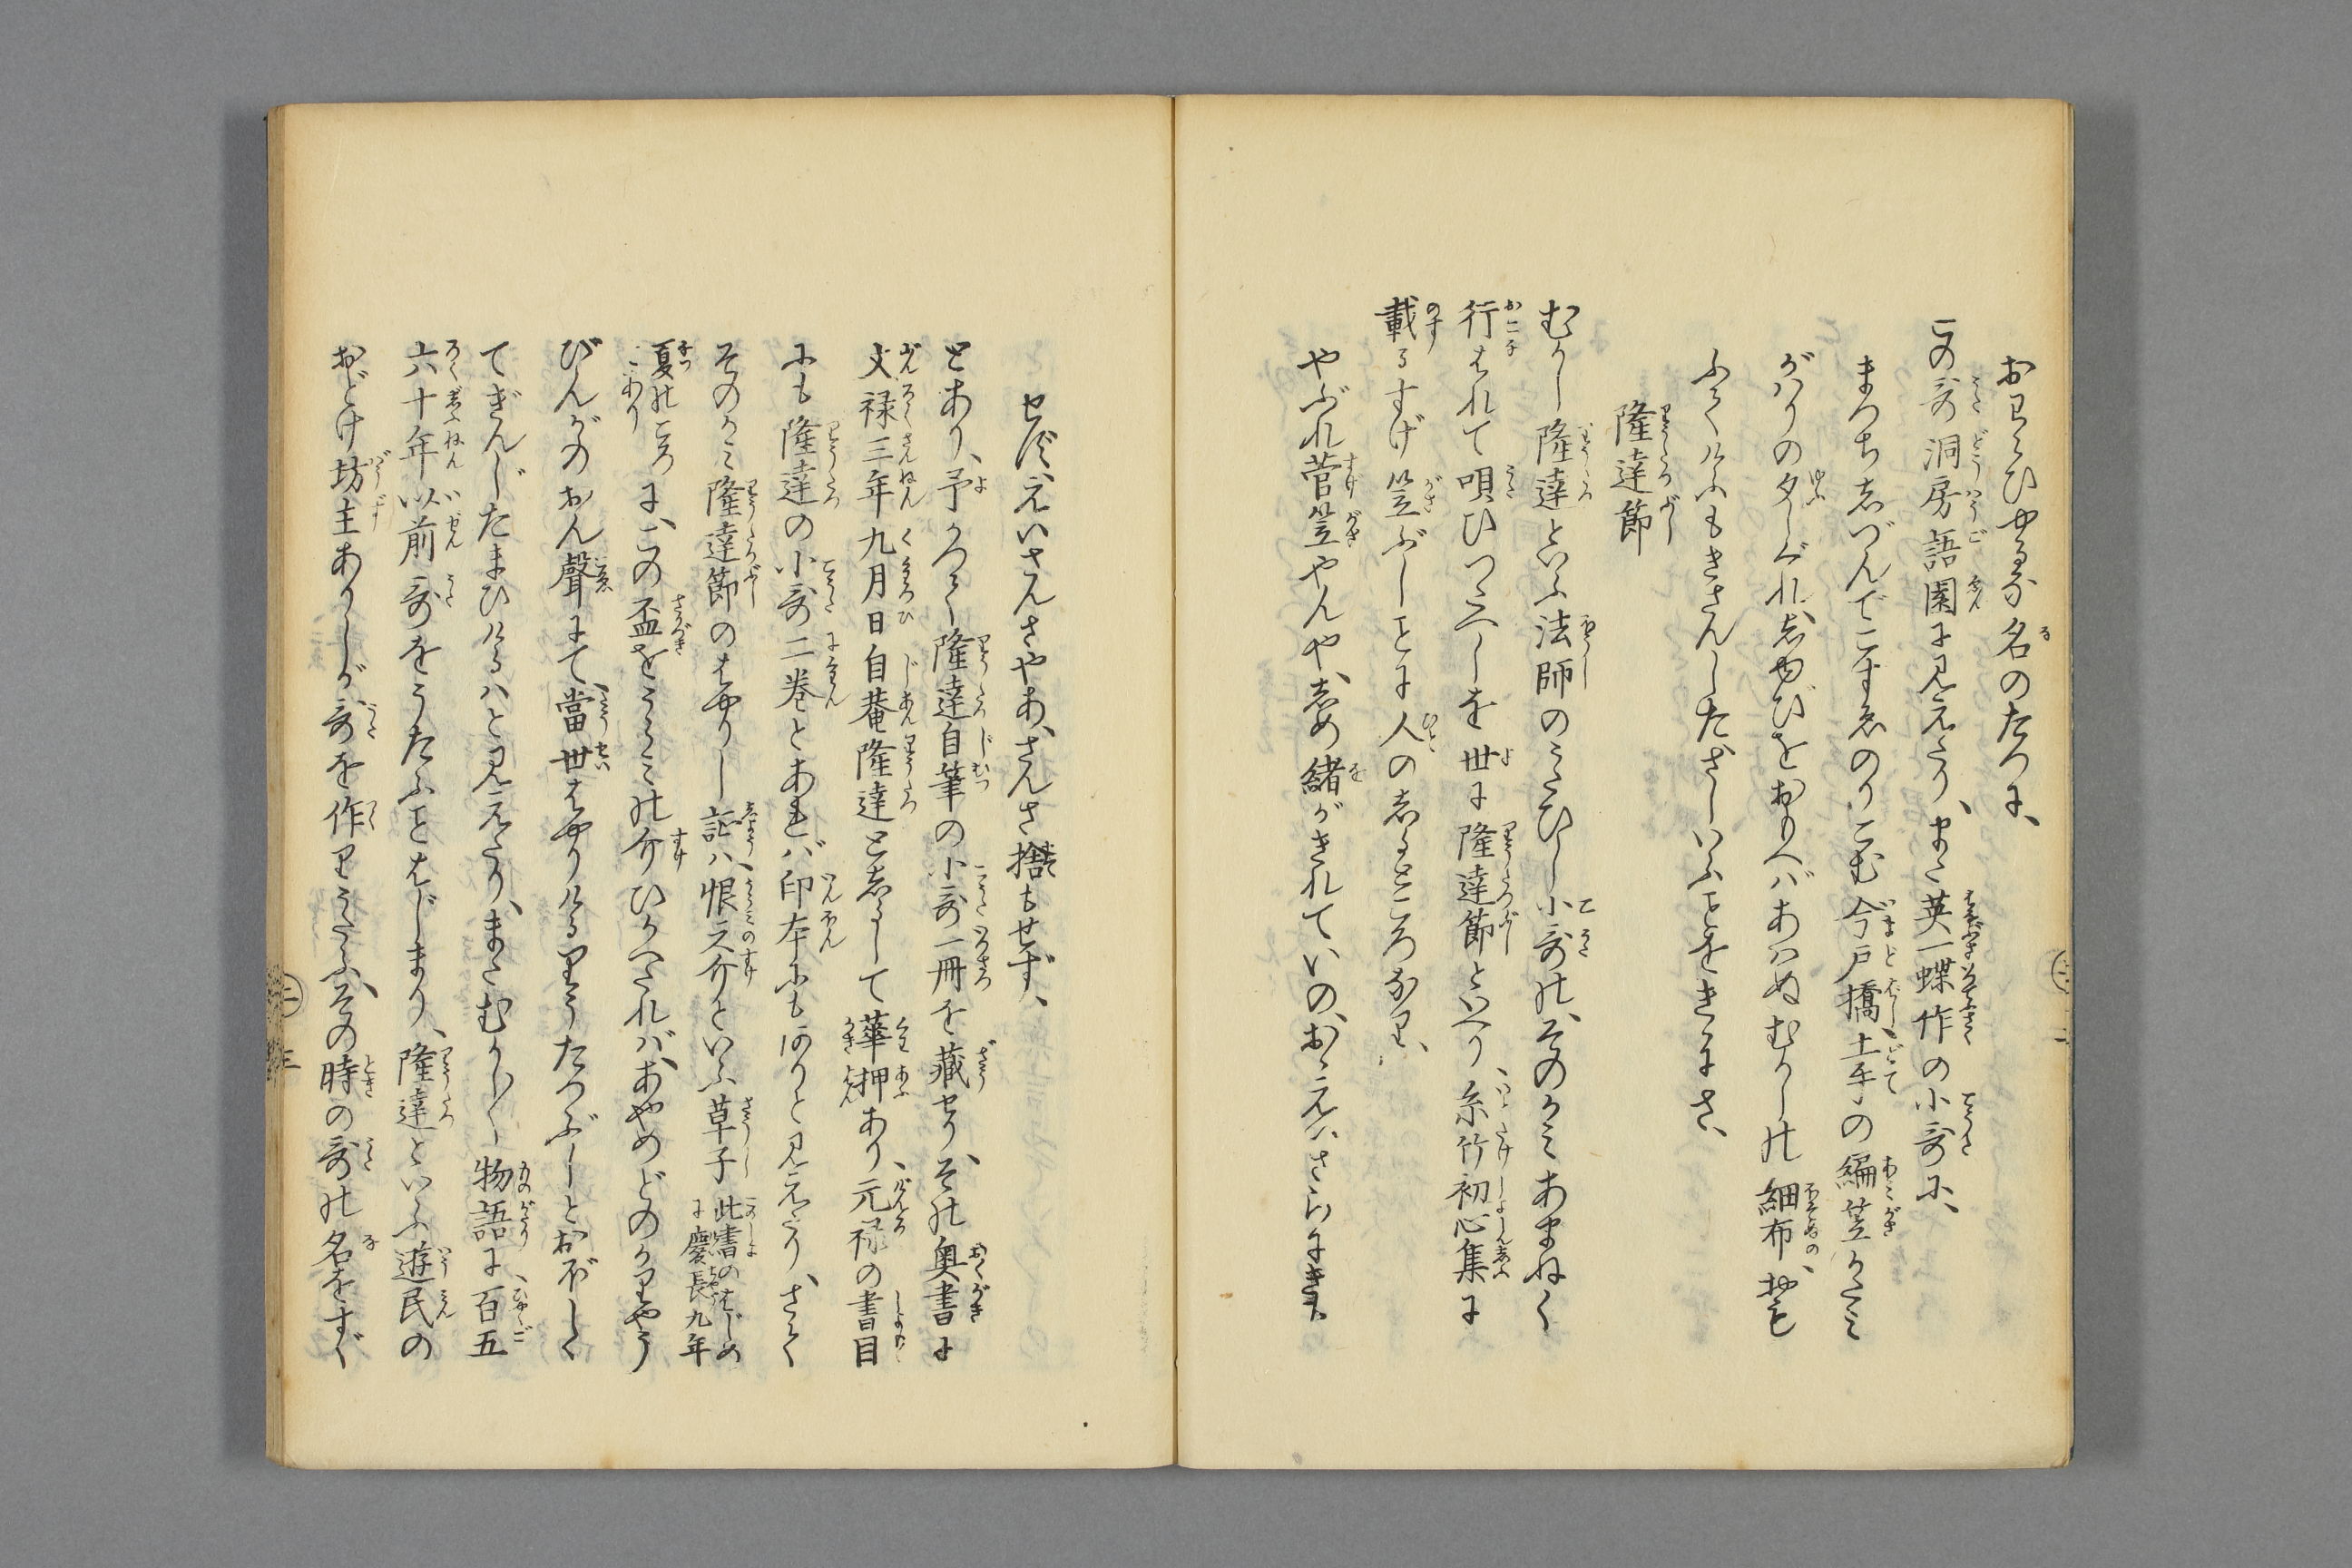 おもひやるな名のたつに、
この哥洞房語園に見えたり、また英一蝶作の小哥に、
まつちしづんでこずゑのりこむ今戸橋、土手の編笠かたみ
がはりの夕しぐれ、しやびをおもへばあはぬむかしの細布、おも
ふてけふもきさんしたざしいふことをきにさ、
隆達節
むかし隆達といふ法師のうたひし小哥の、そのかみあまねく
行はれて唄ひつたへしを世に隆達節といへり、糸竹初心集に
載るすげ笠ぶしことに人のしるところなり、
やぶれ菅笠やんや、しめ緒がきれていの、おゝえハさらにき
せず、えいさんさやあ、さんさ捨もせず、
とあり、予かつて隆達自筆の小哥一冊を蔵せり、その奥書に
文禄三年九月日自菴隆達としるして華押あり、元禄の書目
にも隆達の小哥二巻とあれバ印本にもありと見えたり、さて
そのかみ隆達節のはやりし証ハ、恨之介といふ草子此書のはじめに慶長九年
夏のころに、この盃をうらみの介ひかへたれバ、あやめどのかりやう
びんがのおん聲にて、當世はやりけるりうたつぶしとおぼしく
てぎんじたまひけるハと見えたり、またむかし〳〵物語に、百五
六十年以前哥をうたふことはじまり、隆達といふ遊民の
おどけ坊主ありしが哥を作りうたふ、その時の哥の名をすぐ